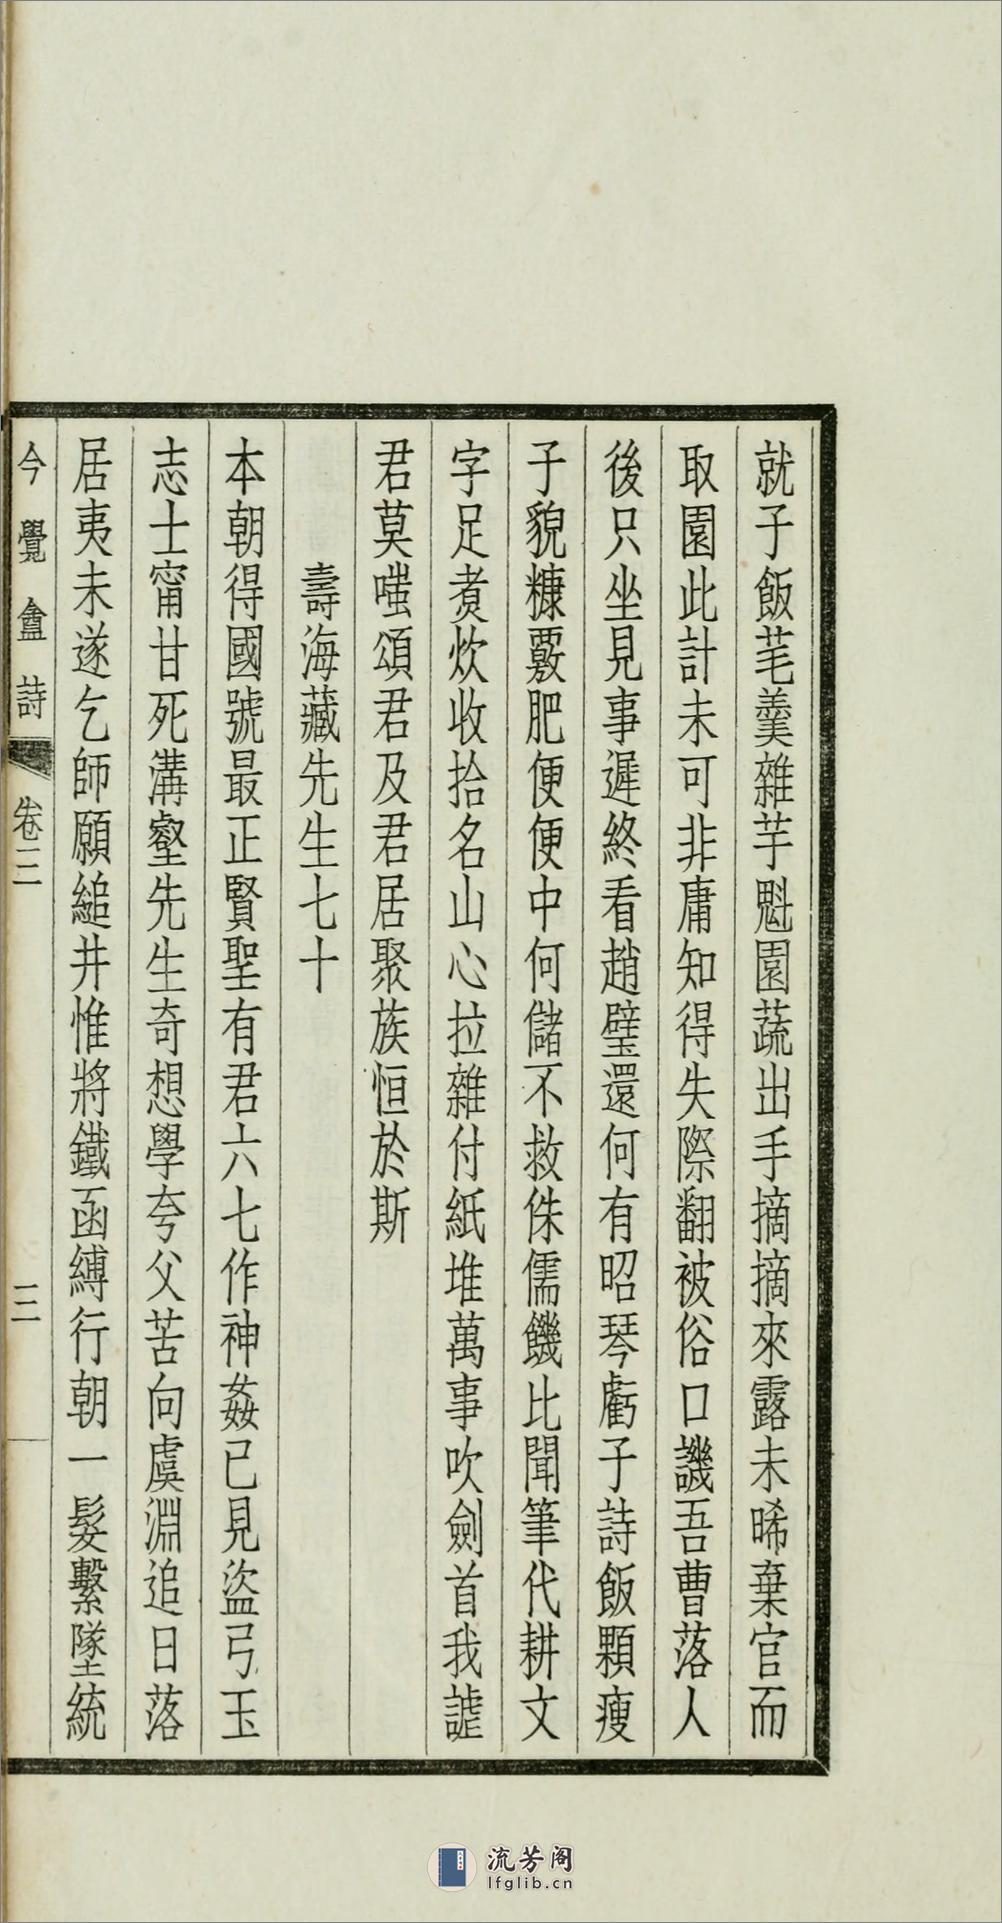 就子飯芼羹雜芋魁園蔬出手摘摘來露未晞棄官而
取園此計未可非庸知得失際翻被俗口譏吾曹落人
後只坐見事遲終看趙璧還何有昭琴虧子詩飯顆瘦
子貌糠覈肥便便中何儲不救侏儒饑比聞筆代耕文
字足煑炊收拾名山心拉雜付紙堆萬事吹劍首我謔
君莫嗤頌君及君居聚族恒於斯
壽海藏先生七十
本朝得國號最正賢聖有君六七作神姦已見盜弓玉
志士甯甘死溝壑先生奇想學夸父苦向虞淵追日落
居夷未遂乞師願縋井惟將鐵函縛行朝一髮繫墜統
今覺盦詩
卷三
三
流芳阁
lfglib.cn